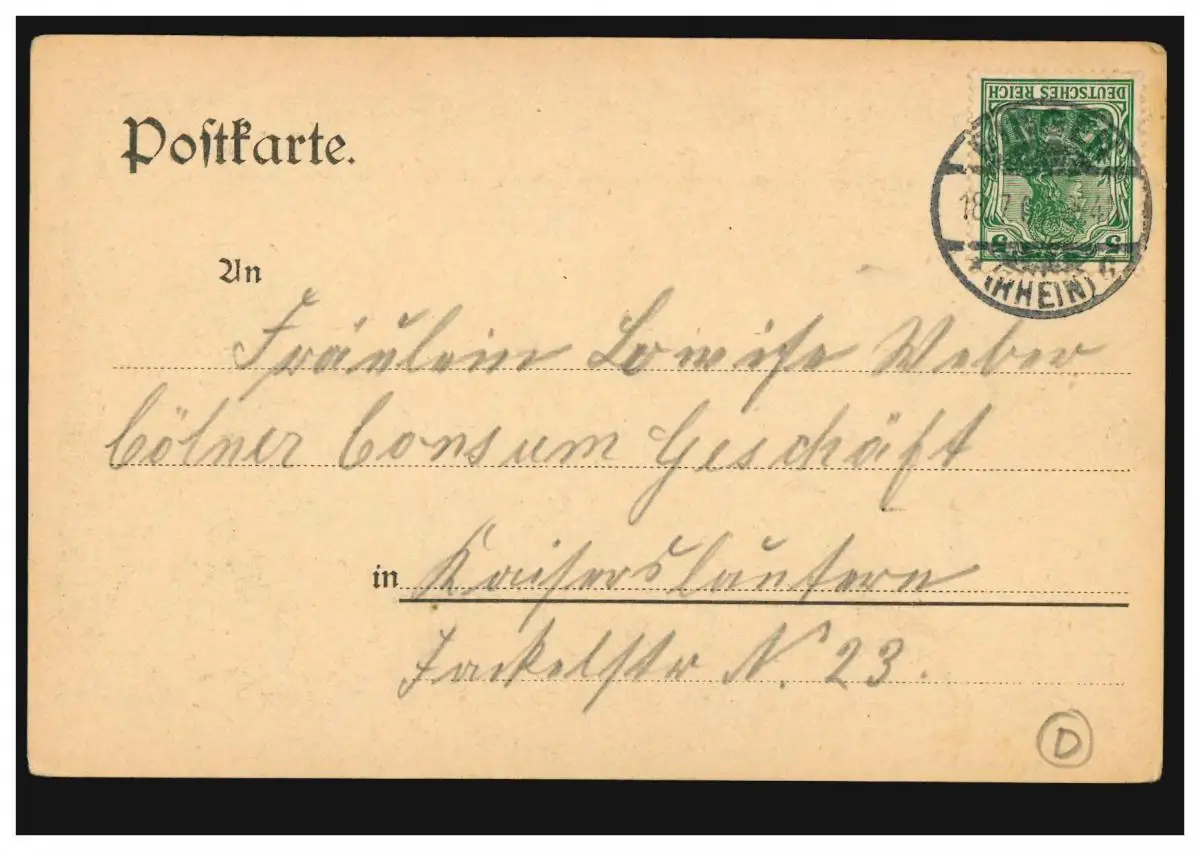 Postkarte.
DEUTSCHES REICH
5 5
BINGEN
(RHEIN) C
An
Fräulein Lowise Weber
Cölner Consum Geschäft
in Kaiserslautern
Fackelstr N. 23.
D